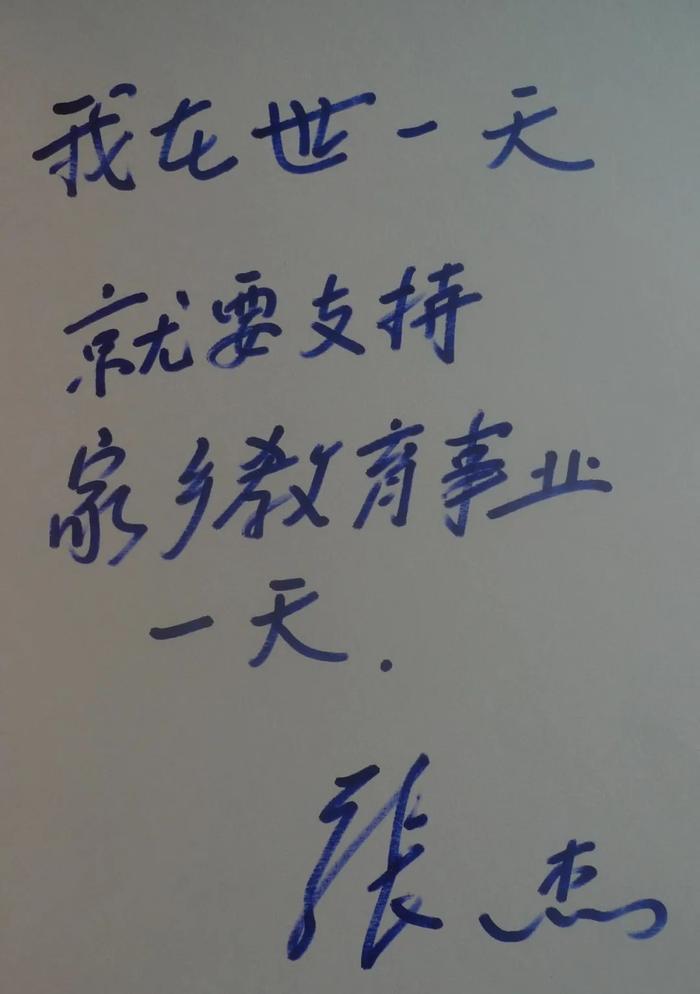 我在世一天
就要支持
家乡教育事业
一天.
张杰